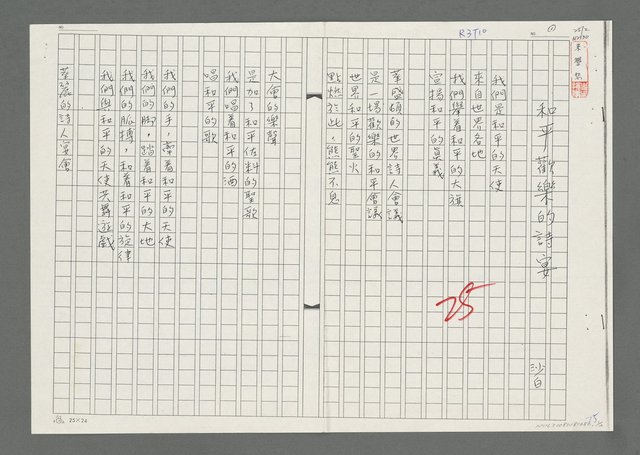 R3T10
①
和平歡樂的詩宴
沙白
我們是和平的天使
來自世界各地
我們舉着和平的大旗
宣揚和平的真義
華盛頓的世界詩人會議
是一場歡樂的和平會議
世界和平的聖火
點燃於此，熊熊不息
25
大會的樂聲
是加了和平佐料的聖歌
我們唱着和平的酒
唱和平的歌
我們的手，牽着和平的天使
我們的腳，踏着和平的大地
我們的脈搏，和着和平的旋律
我們與和平的天使共舞遊戲
華麗的詩人宴會
25×24